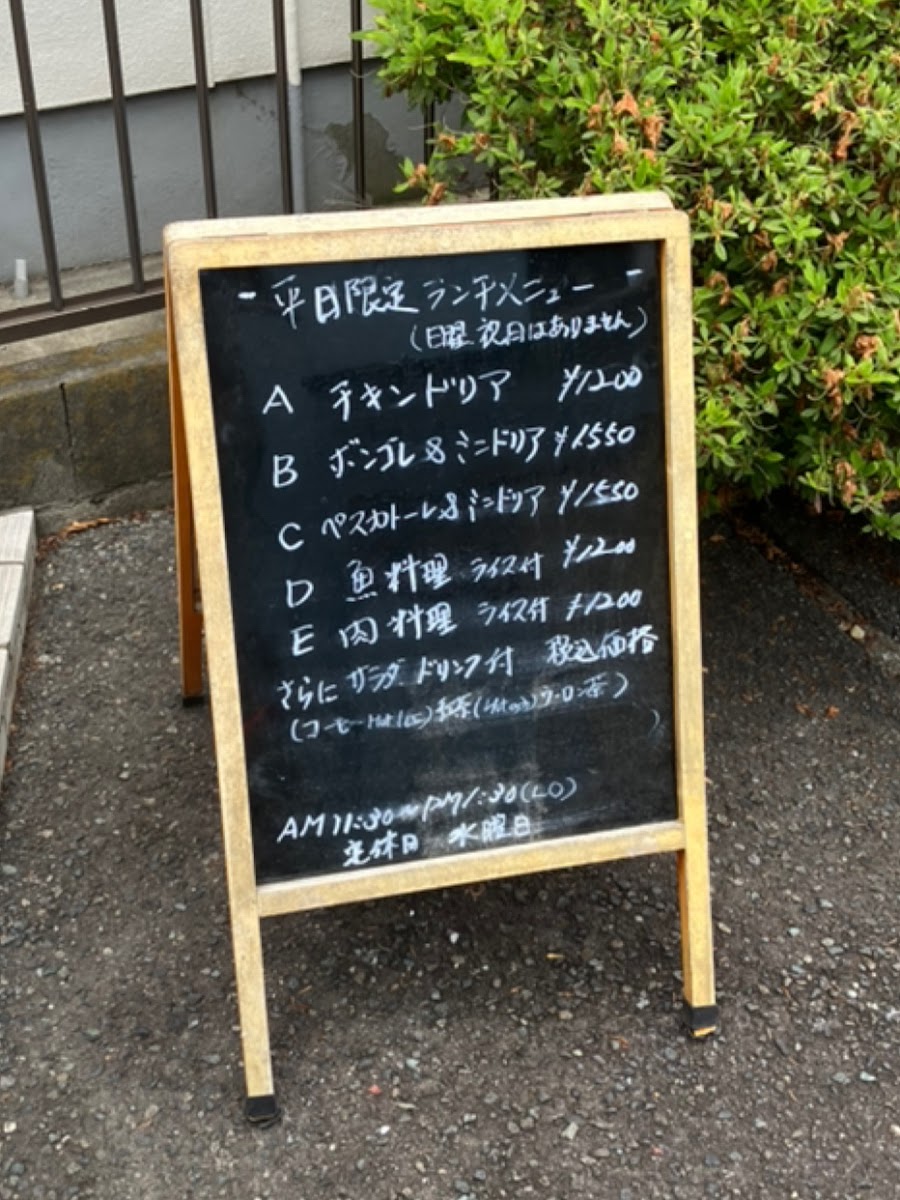 - 平日限定 ランチメニュー -
(日曜 祝日はありません)
A チキンドリア ¥1200
B ボンゴレ & ミニドリア ¥1550
C ペスカトーレ & ミニドリア ¥1550
D 魚料理 ライス付 ¥1200
E 肉料理 ライス付 ¥1200
さらに サラダ ドリンク付 税込価格
(コーヒー Hot Ice) 紅茶 (Hot Ice) ウーロン茶)
AM 11:30~PM 1:30(LO)
定休日 水曜日